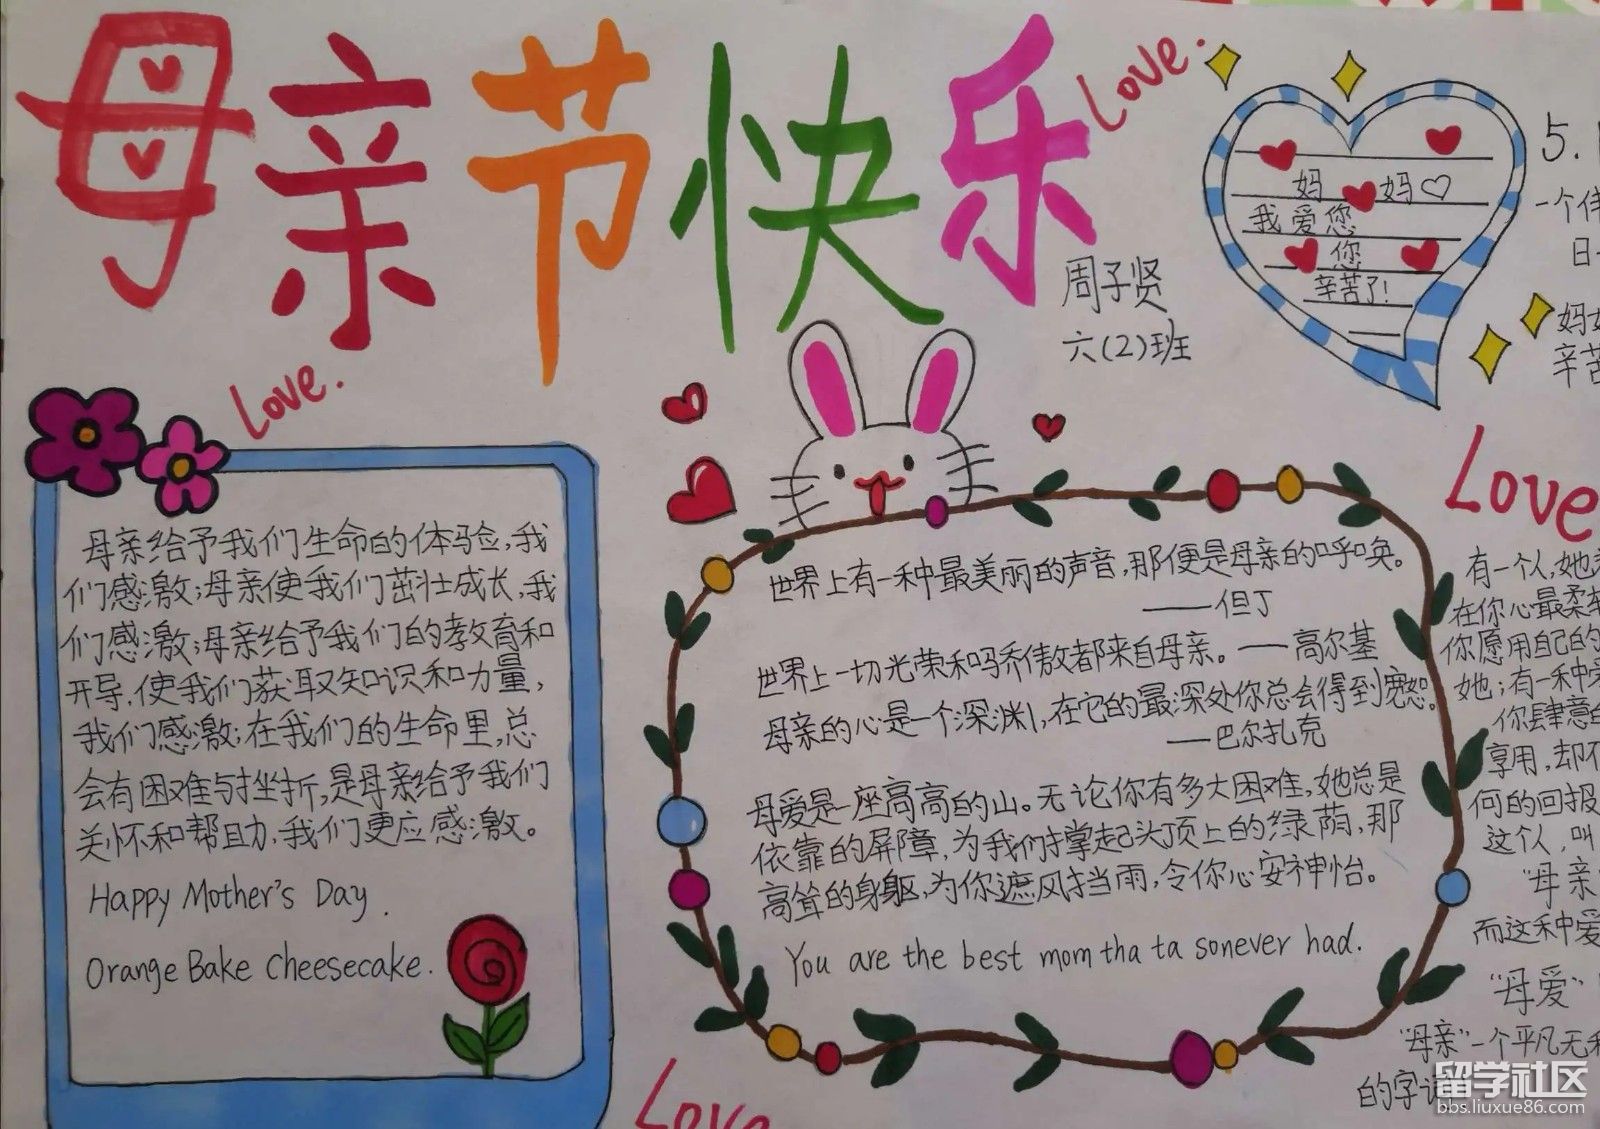 母亲节快乐
Love.
Love.
周子贤
六(2)班
妈 妈
我爱您
您
辛苦了!
母亲给予我们生命的体验,我
们感激;母亲使我们茁壮成长,我
们感激;母亲给予我们的教育和
开导,使我们获取知识和力量,
我们感激;在我们的生命里,总
会有困难与挫折,是母亲给予我们
关怀和帮助,我们更应感激。
Happy Mother's Day.
Orange Bake Cheesecake.
世界上有一种最美丽的声音,那便是母亲的呼唤。
——但丁
世界上一切光荣和骄傲都来自母亲。——高尔基
母亲的心是一个深渊,在它的最深处你总会得到宽恕。
——巴尔扎克
母爱是一座高高的山。无论你有多大困难,她总是
依靠的屏障,为我们撑起头顶上的绿荫,那
高耸的身躯,为你遮风挡雨,令你心安神怡。
You are the best mom tha ta sonever had.
Love
5.
一个伟
日
妈妈
辛苦
Love
有一个人,她
在你心最柔软
你愿用自己的
她;有一种爱
你肆意的
享用,却不
何的回报
这个人,叫
“母亲”
而这种爱
“母爱”
“母亲”一个平凡无
的字
留学社区
bbs.liuxue86.com